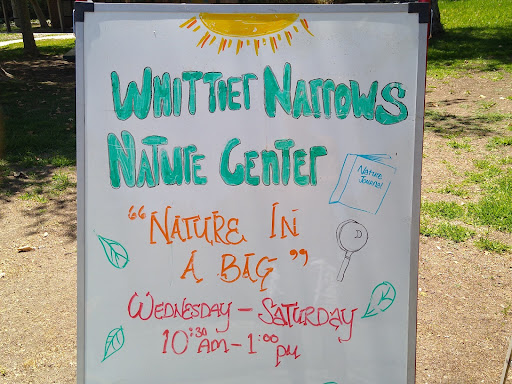 Whittier Narrows
Nature Center
Nature
Journal
"Nature In
A Bag"
Wednesday - Saturday
10:30 AM - 1:00 PM